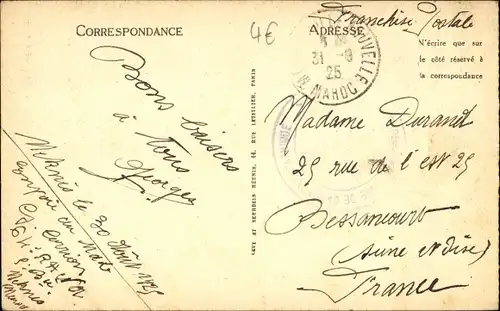 CORRESPONDANCE
4€
ADRESSE
Franchise Postale
N'écrire que sur
le côté réservé à
la correspondance
NOUVELLE
31-8
25
MAROC
Bons baisers
à tous
Georges
Meknès le 30 Août 1925
LÉVY ET NEURDEIN RÉUNIS, 44, RUE LETELLIER, PARIS
Madame Durand
25 rue de l'est 25
Bessancourt
(Seine et Oise)
France